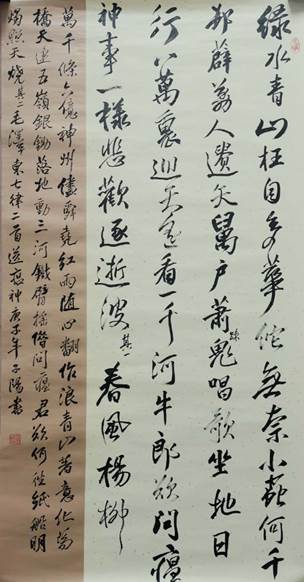 綠水青山枉自多華佗無奈小蟲何千
邨薜荔人遺矢萬戶蕭疏鬼唱歌坐地日
行八萬里巡天遙看一千河牛郎欲問瘟
神事一樣悲歡逐逝波其一春風楊柳
萬千條六億神州盡舜堯紅雨隨心翻作浪青山著意化為
橋天連五嶺銀鋤落地動三河鐵臂搖借問瘟君欲何往紙船明
燭照天燒其二毛澤東七律二首送瘟神庚子年子陽書